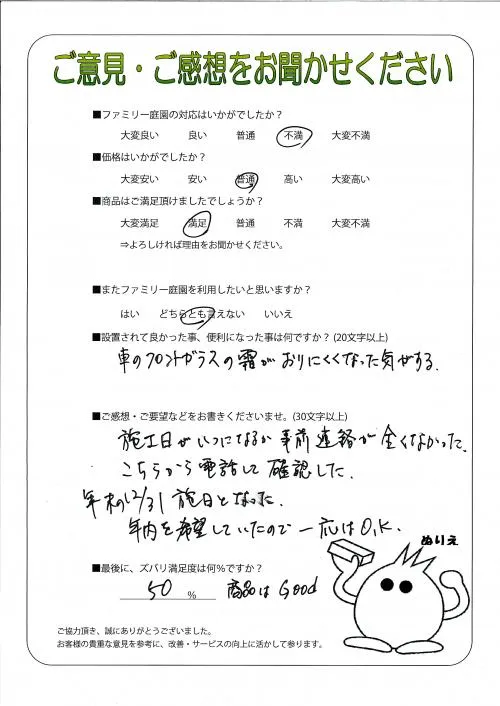 ご意見・ご感想をお聞かせください
■ファミリー庭園の対応はいかがでしたか？
大変良い 良い 普通 不満 大変不満
■価格はいかがでしたか？
大変安い 安い 普通 高い 大変高い
■商品はご満足頂けましたでしょうか？
大変満足 満足 普通 不満 大変不満
⇒よろしければ理由をお聞かせください。
■またファミリー庭園を利用したいと思いますか？
はい どちらとも言えない いいえ
■設置されて良かった事、便利になった事は何ですか？(20文字以上)
車のフロントガラスの霜がおりにくくなった気がする.
■ご感想・ご要望などをお書きくださいませ。(30文字以上)
施工日がいつになるか事前連絡が全くなかった.
こちらから電話して確認した.
年末の12/31 施日となった.
年内を希望していたので一応はO.K.
ぬりえ
■最後に、ズバリ満足度は何％ですか？
50 % 商品はGood
ご協力頂き、誠にありがとうございました。
お客様の貴重な意見を参考に、改善・サービスの向上に活かして参ります。